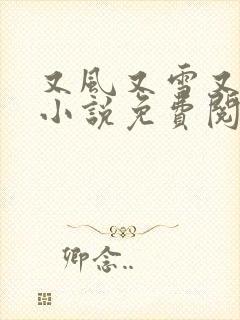 又風又雪又
小說免費閱
卿念..